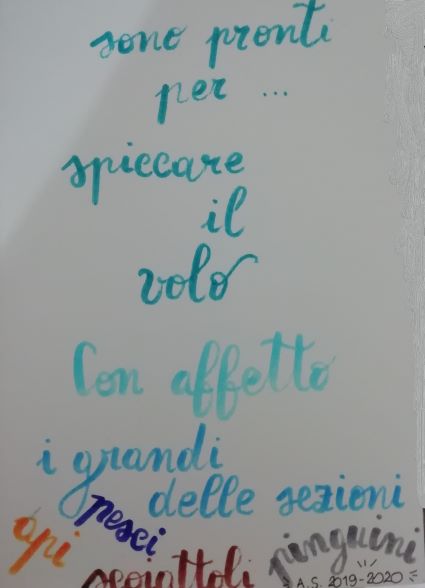 sono pronti
per ...
spiccare
il
volo
Con affetto
i grandi
delle sezioni
api pesci
scoiattoli pinguini
A.S. 2019-2020